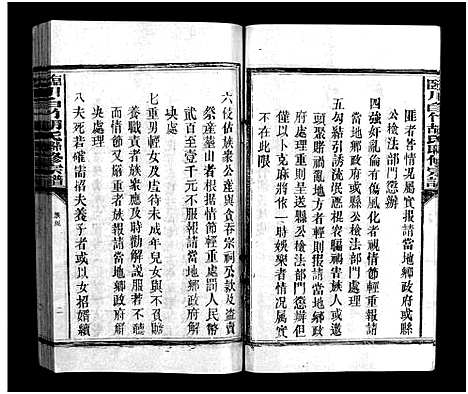 臨川白竹胡氏聯修宗譜
匪者皆情况屬實報請當地鄉政府或縣
公檢法部門懲辦
四強奸亂倫有傷風化者視情節輕重報請
當地鄉政府或縣公檢法部門處理
五勾結引誘流氓惡棍哀騙禍害族人或邀
頭聚賭禍亂地方者輕則報請當地鄉政
府處理重則呈送縣公檢法部門懲辦但
係以卜克麻將依一時娛樂者情况屬實
不在此限
六侵佔衆公產與貪吞宗祠公款及盜賣
祭產墓山者根據情節輕重處罰人民幣
百元至壹千元不服報請當地鄉政府解
決處
七重男輕女及虐待未成年兒女與不負贍
養職責者族衆應及時勸解説服若不
服或情節又嚴重者族報請當地鄉政府
處理
八夫死若確需招夫養子者或以女招婿續
臨川白竹胡氏聯修宗譜
二